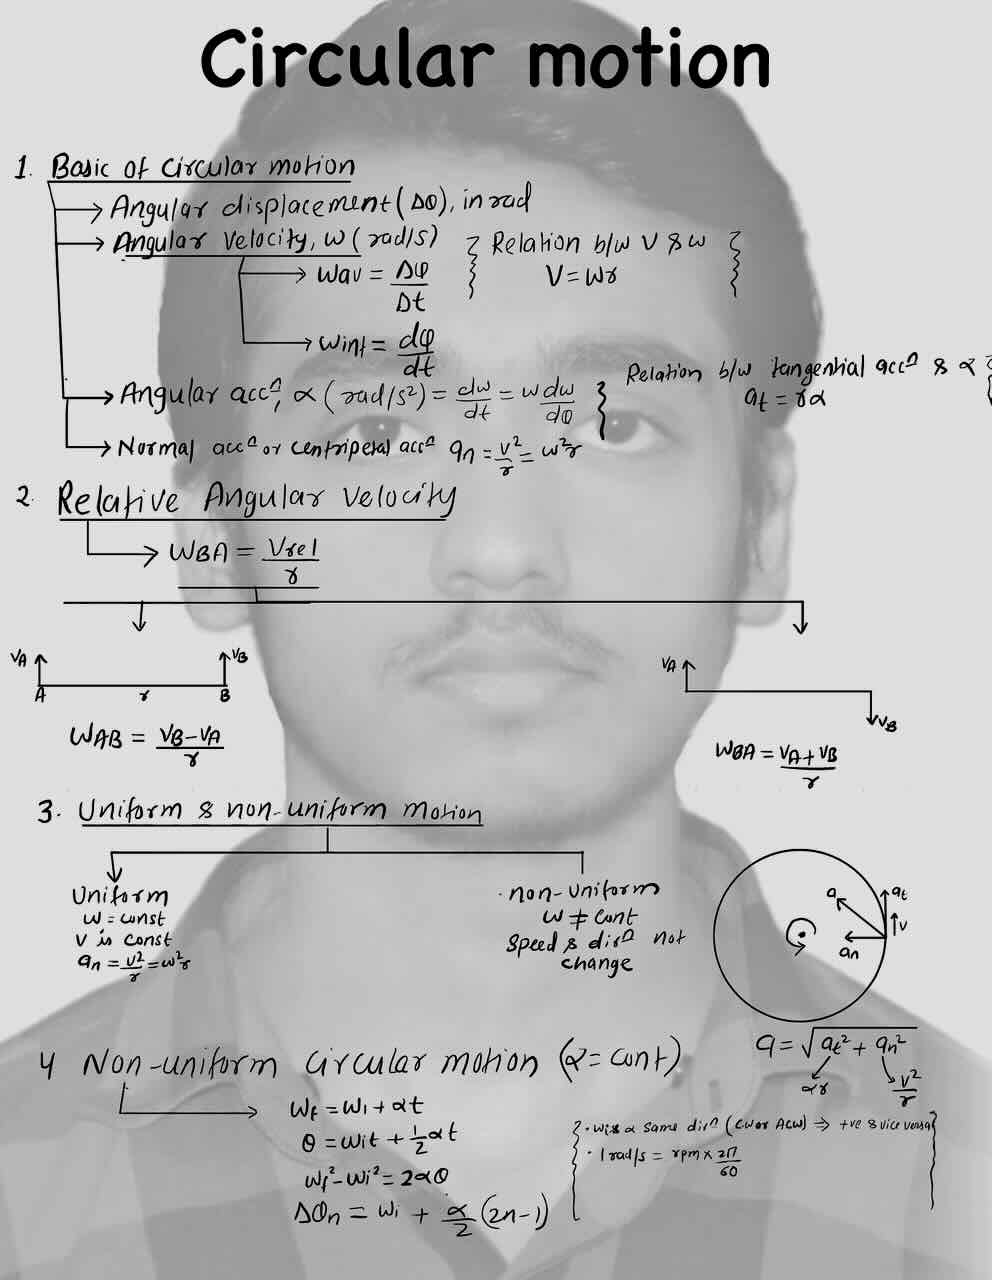 Circular motion
1. Basic of circular motion
Angular displacement (Δθ), in rad
Angular velocity, ω (rad/s)
Relation b/w V & ω
V = ωr
ωav = Δφ/Δt
ωint = dφ/dt
Angular accⁿ, α (rad/s²) = dω/dt = ω dω/dθ
Relation b/w tangential accⁿ & α
at = rα
Normal accⁿ or centripetal accⁿ an = v²/r = ω²r
2. Relative Angular velocity
ωBA = Vrel/r
VA VB
A r B
ωAB = VB-VA/r
VA
VB
ωBA = VA+VB/r
3. Uniform & non-uniform motion
Uniform
ω = const
V is const
an = v²/r = ω²r
non-uniform
ω ≠ cont
Speed & dirⁿ not
change
a at
v
an
a = √at² + an²
αr v²/r
4 Non-uniform circular motion (α = cont)
ωf = ωi + αt
θ = ωit + 1/2 αt
ωf² - ωi² = 2αθ
Δθn = ωi + α/2 (2n-1)
α same dirⁿ (cw or Acw) ⇒ +ve & vice versa
1 rad/s = rpm × 2π/60